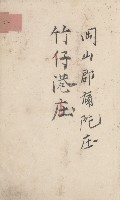 岡山郡彌陀庄
竹仔港庄